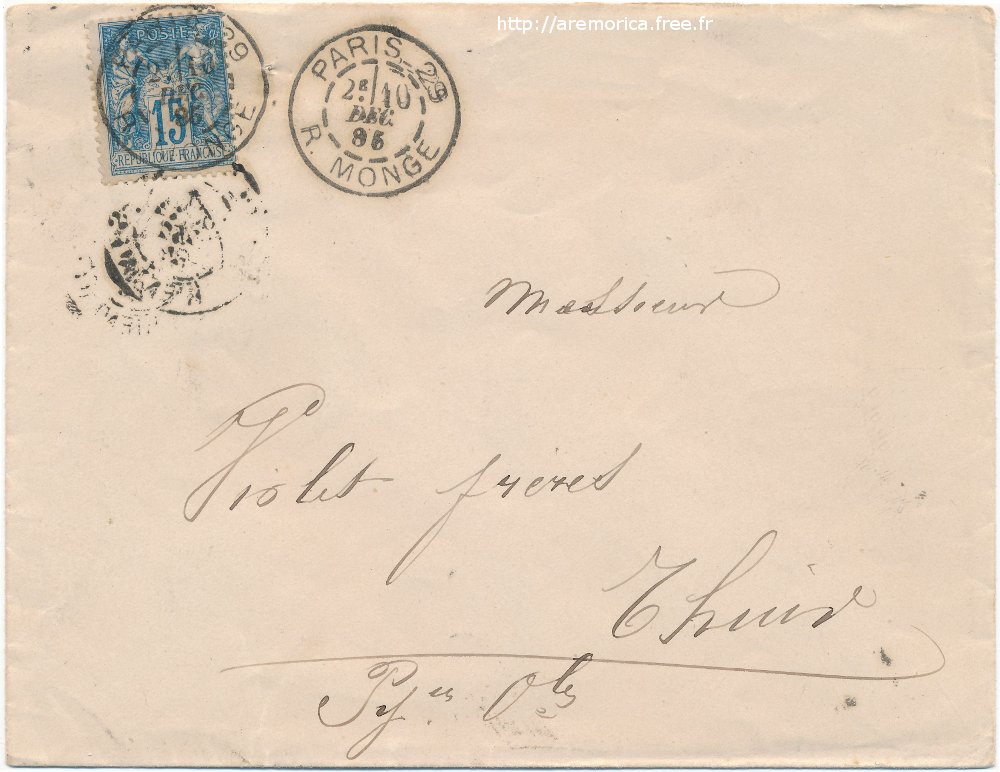 http://aremorica.free.fr
POSTE
15
REPUBLIQUE FRANCAISE
PARIS. 29
2E 10
DEC.
86
R. MONGE
Messieurs
Violet frères
Thuir
Pyes Oles